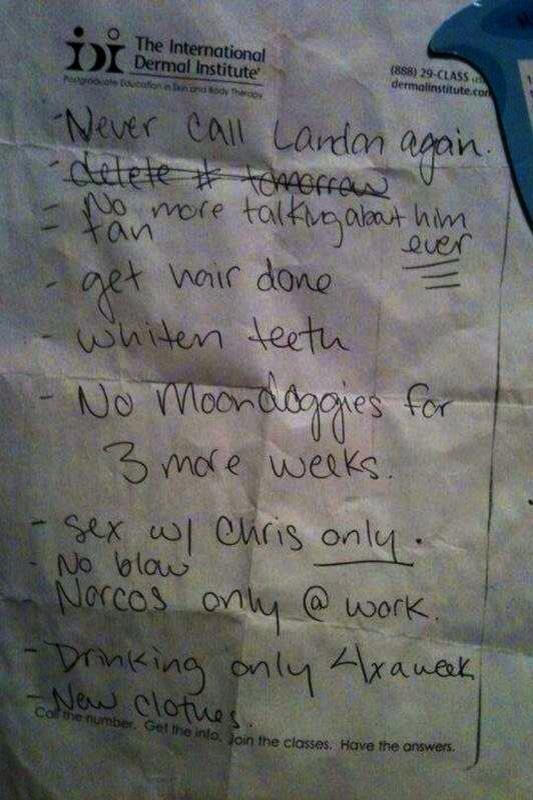 The International
Dermal Institute®
Postgraduate Education in Skin and Body Therapy
(888) 29-CLASS
dermalinstitute.com
- Never call Landon again.
- delete # tomorrow
- No more talking about him
- tan ever
- get hair done
- whiten teeth
- No Moondoggies for
3 more weeks.
- sex w/ Chris only.
- No blow
Narcos only @ work.
- Drinking only 4/x a week
- New clothes.
Call the number. Get the info. Join the classes. Have the answers.